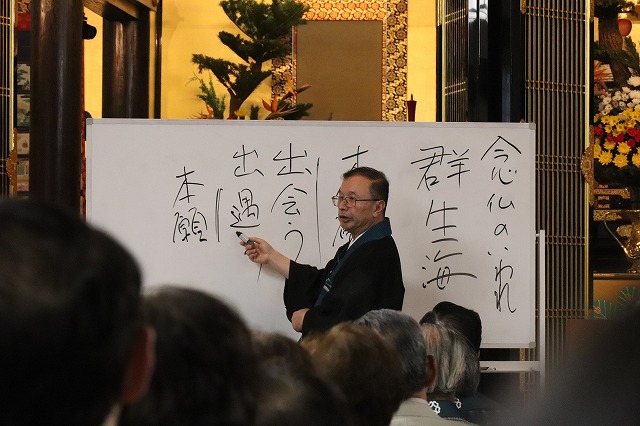 念仏のいわれ
群生海
本
出会う
出遇
本願